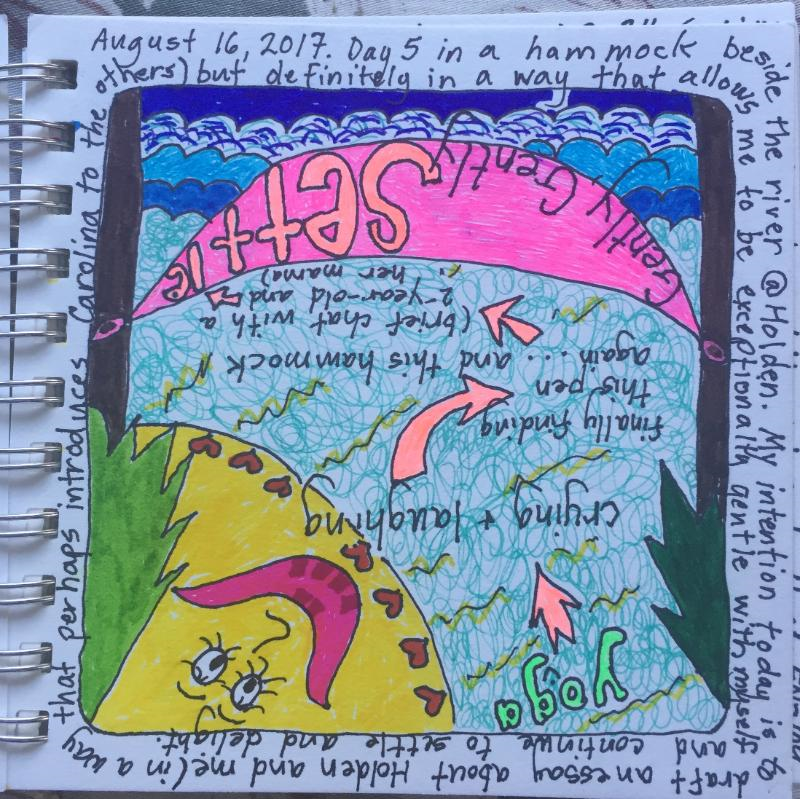 August 16, 2017. Day 5 in a hammock beside
the river @Holden. My intention today is to
draft an essay about Holden and me (in a way
that perhaps introduces Carolina to the
others) but definitely in a way that allows
me to be exceptionally gentle with myself and
continue to settle and delight.
yoga
crying + laughing
finally finding
this pen
again... and this hammock
(brief chat with a
2-year-old and
her mama)
Gently, Gently Settle